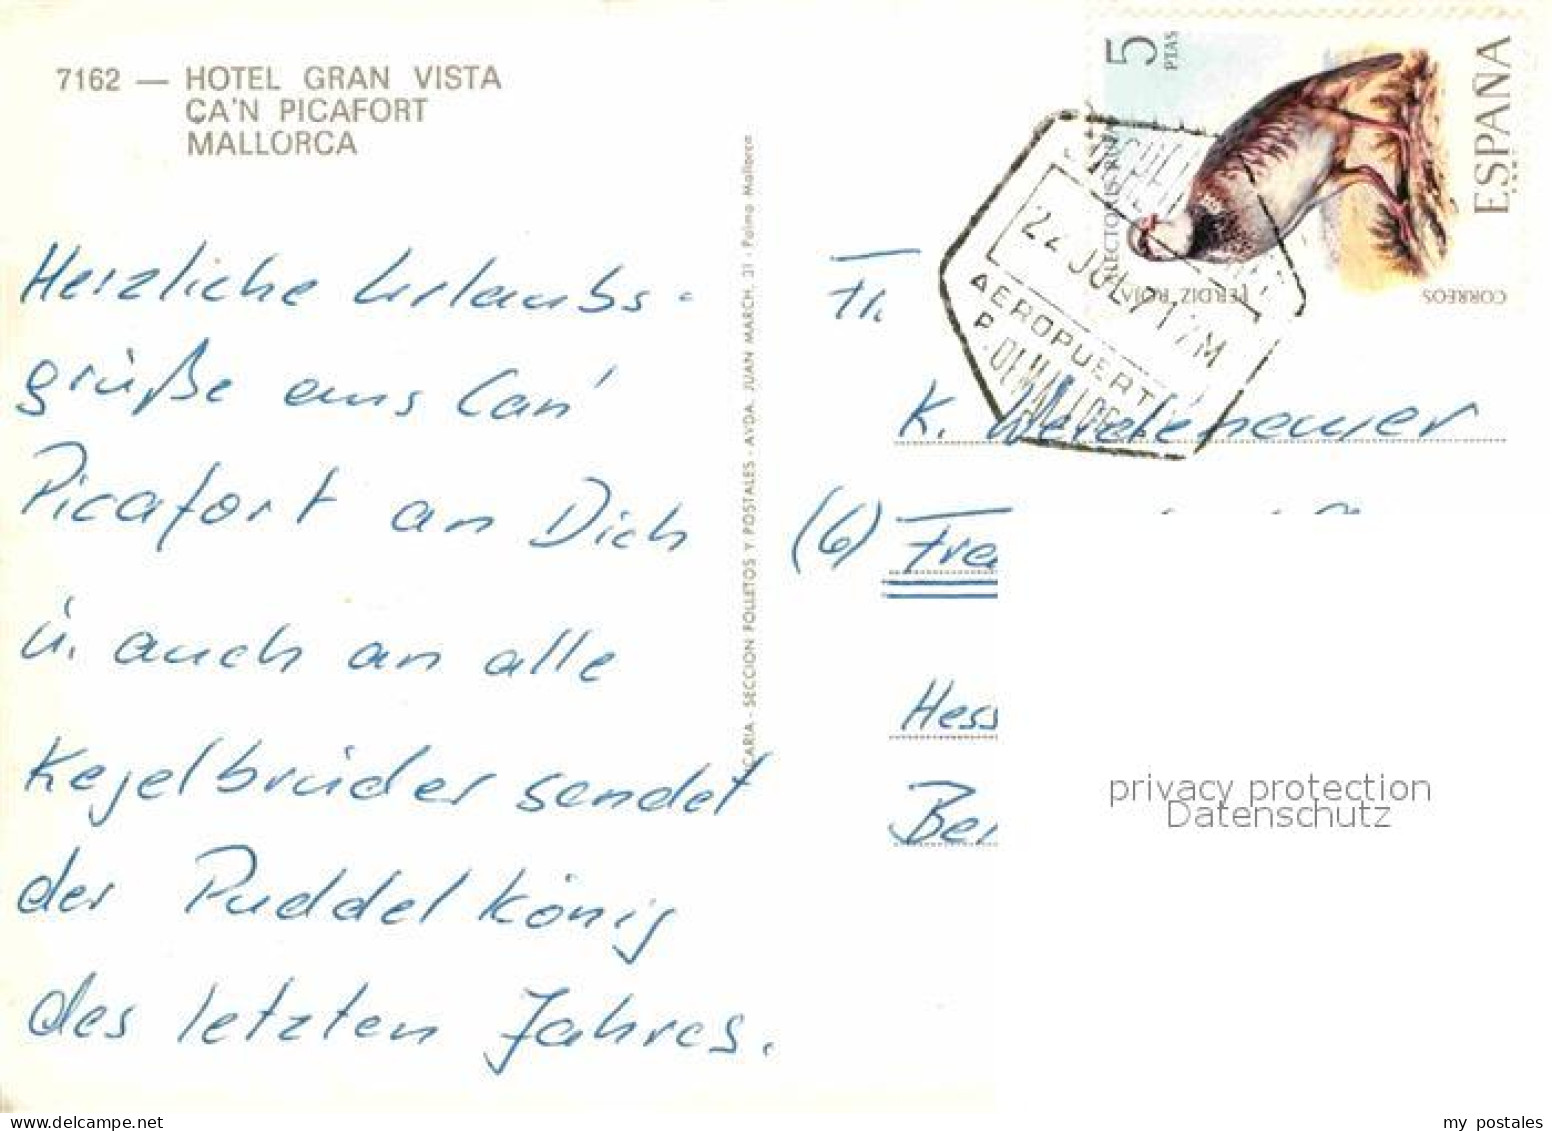 7162 — HOTEL GRAN VISTA
ÇA'N PICAFORT
MALLORCA
Herzliche Urlaubs-
grüße aus Can'
Picafort an Dich
u. auch an alle
Kegelbrüder sendet
der Puddelkönig
des letzten Jahres.
CARIA - SECCION FOLLETOS Y POSTALES - AVDA. JUAN MARCH, 31 - Palma Mallorca
5 PTAS
ESPAÑA
CORREOS
PERDIZ ROJA
ALECTORIS RUFA
22 JUL 71 2M
AEROPUERTO
P. DE MALLORCA
Fr.
K.
(6) Fra
Hess
Ber
privacy protection
Datenschutz
my postales